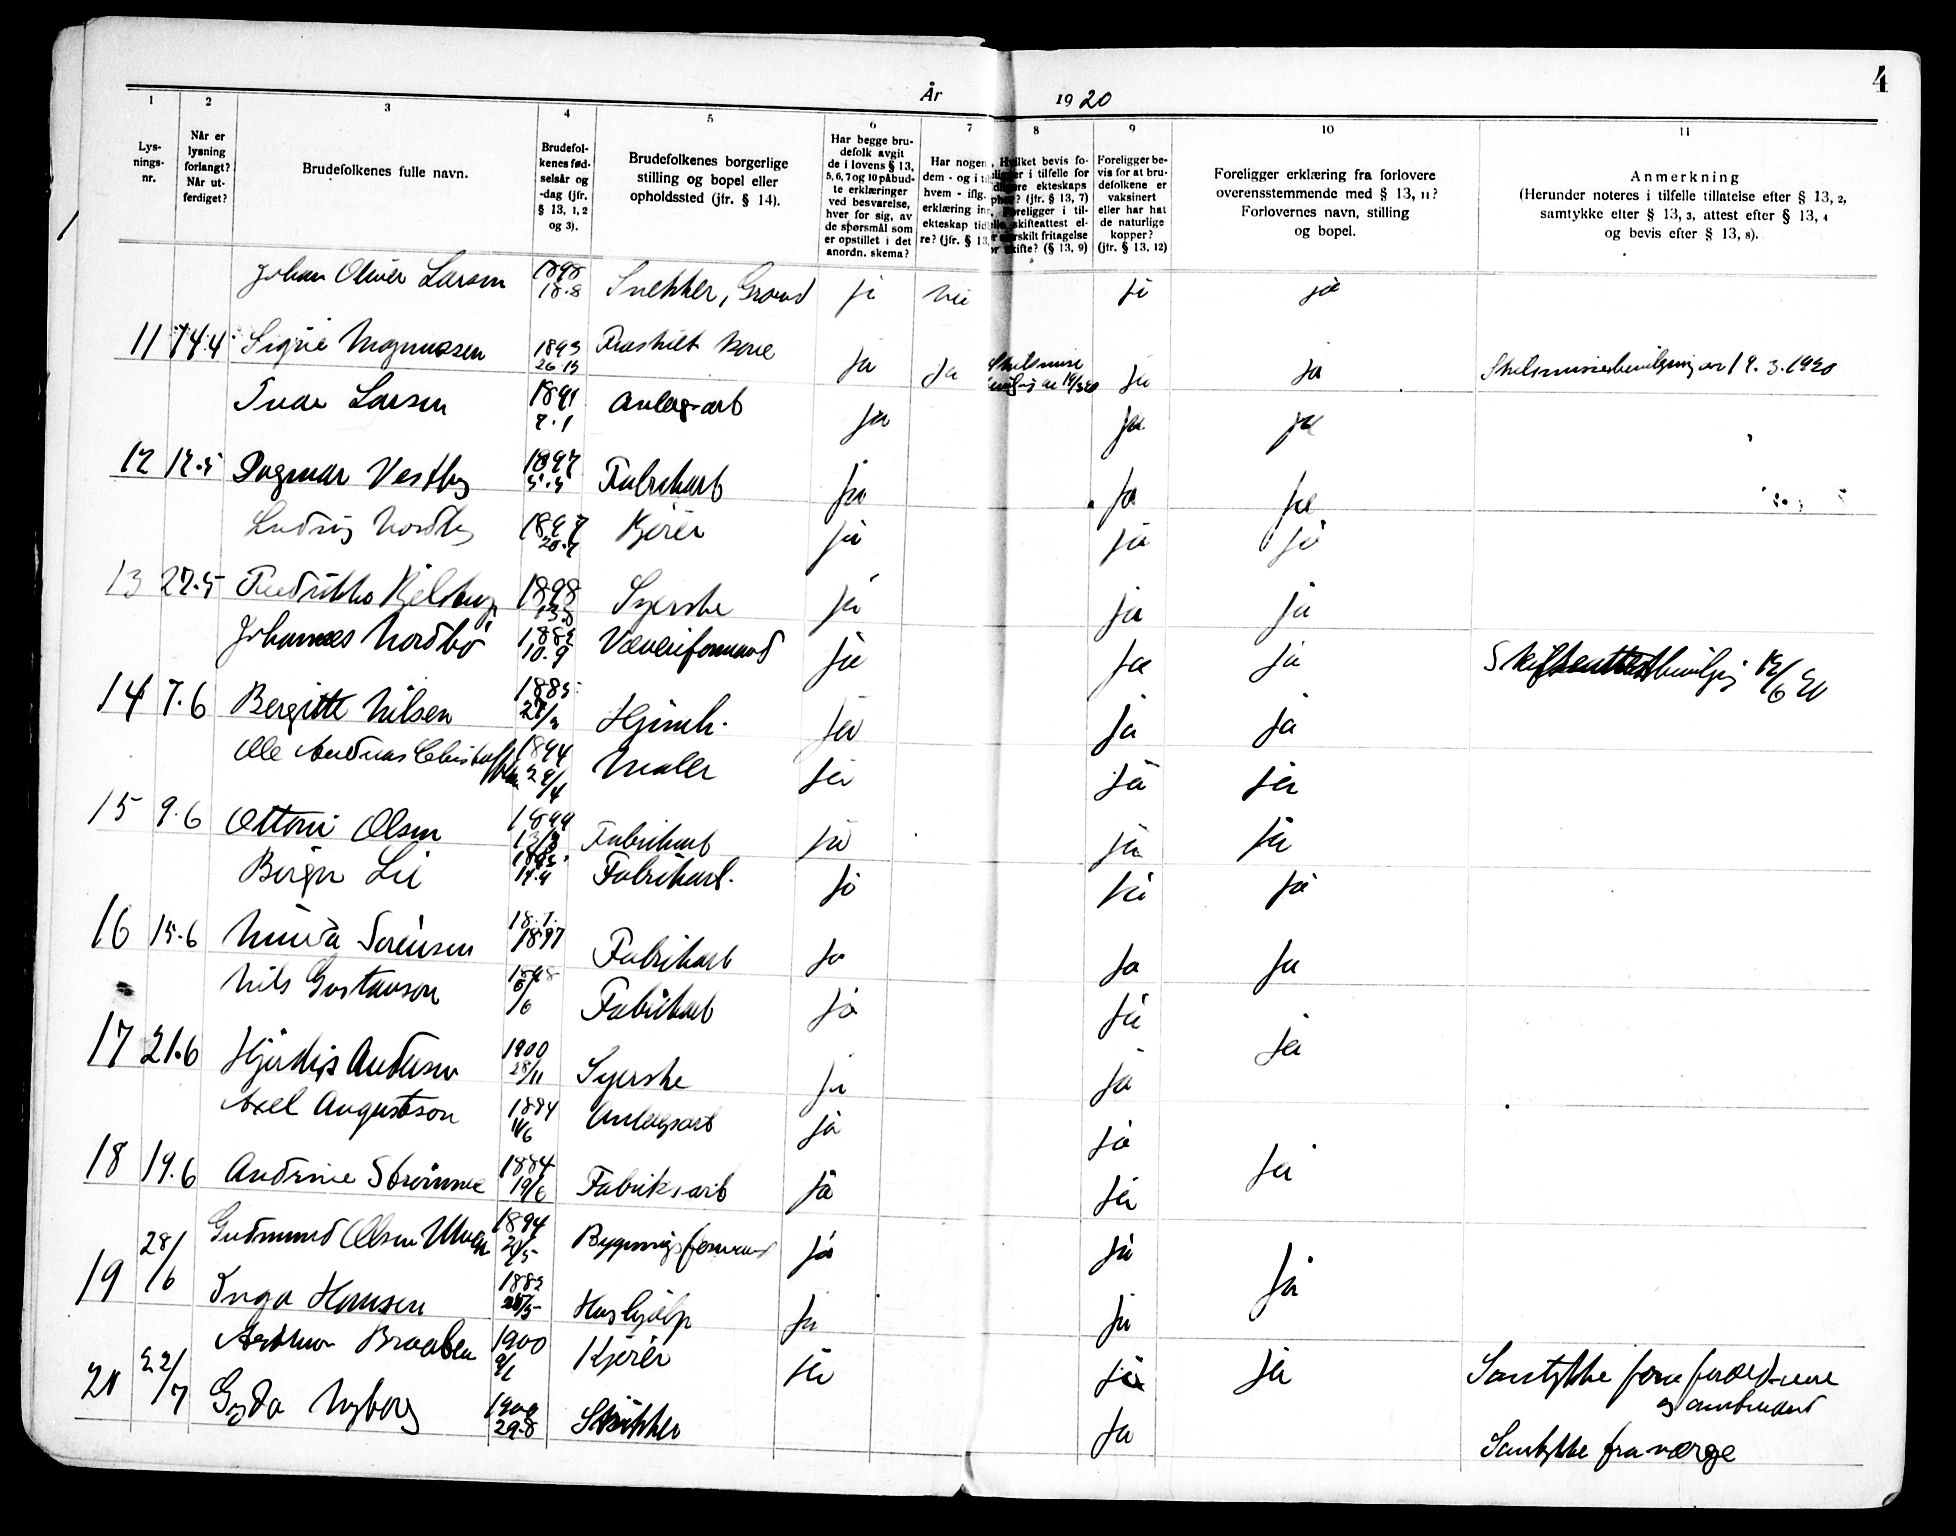 4
År 1920
1 2 3 4 5 6 7 8 9 10 11
Lys-
nings-
nr.
Når er
lysning
forlangt?
Når ut-
ferdiget?
Brudefolkenes fulle navn.
Brudefol-
kenes fød-
selsår og
-dag (jfr.
§ 13, 1, 2
og 3).
Brudefolkenes borgerlige
stilling og bopel eller
opholdssted (jfr. § 14).
Har begge bru-
defolk avgit
de i lovens § 13,
5, 6, 7 og 10 påbud-
te erklæringer
ved besvarelse,
hver for sig, av
de spørsmål som
er opstillet i det
anordn. skema?
Har nogen
dem - og i
hvem - ifig.
erklæring
ekteskap
re? (jfr. § 13,
bevis fo-
i tilfelle for
ekteskaps
? (jfr. § 13, 7)
Foreligger i til-
skifteattest el-
fritagelse
skifte? (§ 13, 9)
Foreligger be-
vis for at bru-
defolkene er
vaksinert
eller har hat
de naturlige
kopper?
(jfr. § 13, 12)
Foreligger erklæring fra forlovere
overensstemmende med § 13, 11?
Forlovernes navn, stilling
og bopel.
Anmerkning
(Herunder noteres i tilfelle tillatelse efter § 13, 2,
samtykke efter § 13, 3, attest efter § 13, 4
og bevis efter § 13, 8).
Johan Oliver Larsen 1898 18.8 Snekker, ja nei ja ja
11 14.4 Signe Magnussen 1893 Fraskilt ja ja ja ja Skilsmissebevilgning av 19.3.1920
Larsen 1891 Anlegsarb ja ja ja
12 12.5 Dagmar Vestby 1897 5.5 Fabrikarb ja ja ja
Ludvig Nordby 1897 20.7 Kjører ja ja ja
13 27.5 Fredrikke 1898 Syerske ja ja ja
Johannes Nordbø 10.9 Væveriformand ja ja ja
14 7.6 Bergitte Nilsen 1885 Hjemh. ja ja ja
Ole Andreas 1894 29/4 Maler ja ja ja
15 9.6 Ottoni Olsen 1899 Fabrikarb ja ja ja
Birger Lie Fabrikarb. ja ja ja
16 15.6 Sørensen 18.1. 1897 Fabrikarb ja ja ja
Nils Gustavson 1898 /6 Fabrikarb ja ja
17 21.6 Hjørdis Andersen 1900 28/11 Syerske ja ja ja
Axel Augustson 1884 Anlegsarb ja ja
18 19.6 Andrine Strømme 1884 19/6 Fabriksarb ja ja ja
Gudmund Olsen 1894 Bygningsformand ja ja
19 28/6 Inga Hansen 1882 Hushjælp ja ja ja
Arthur Braaten 1900 9/1 Kjører ja ja ja Samtykke
20 22/7 Gyda Nyborg 1900 29.8 ja Samtykke fra værge